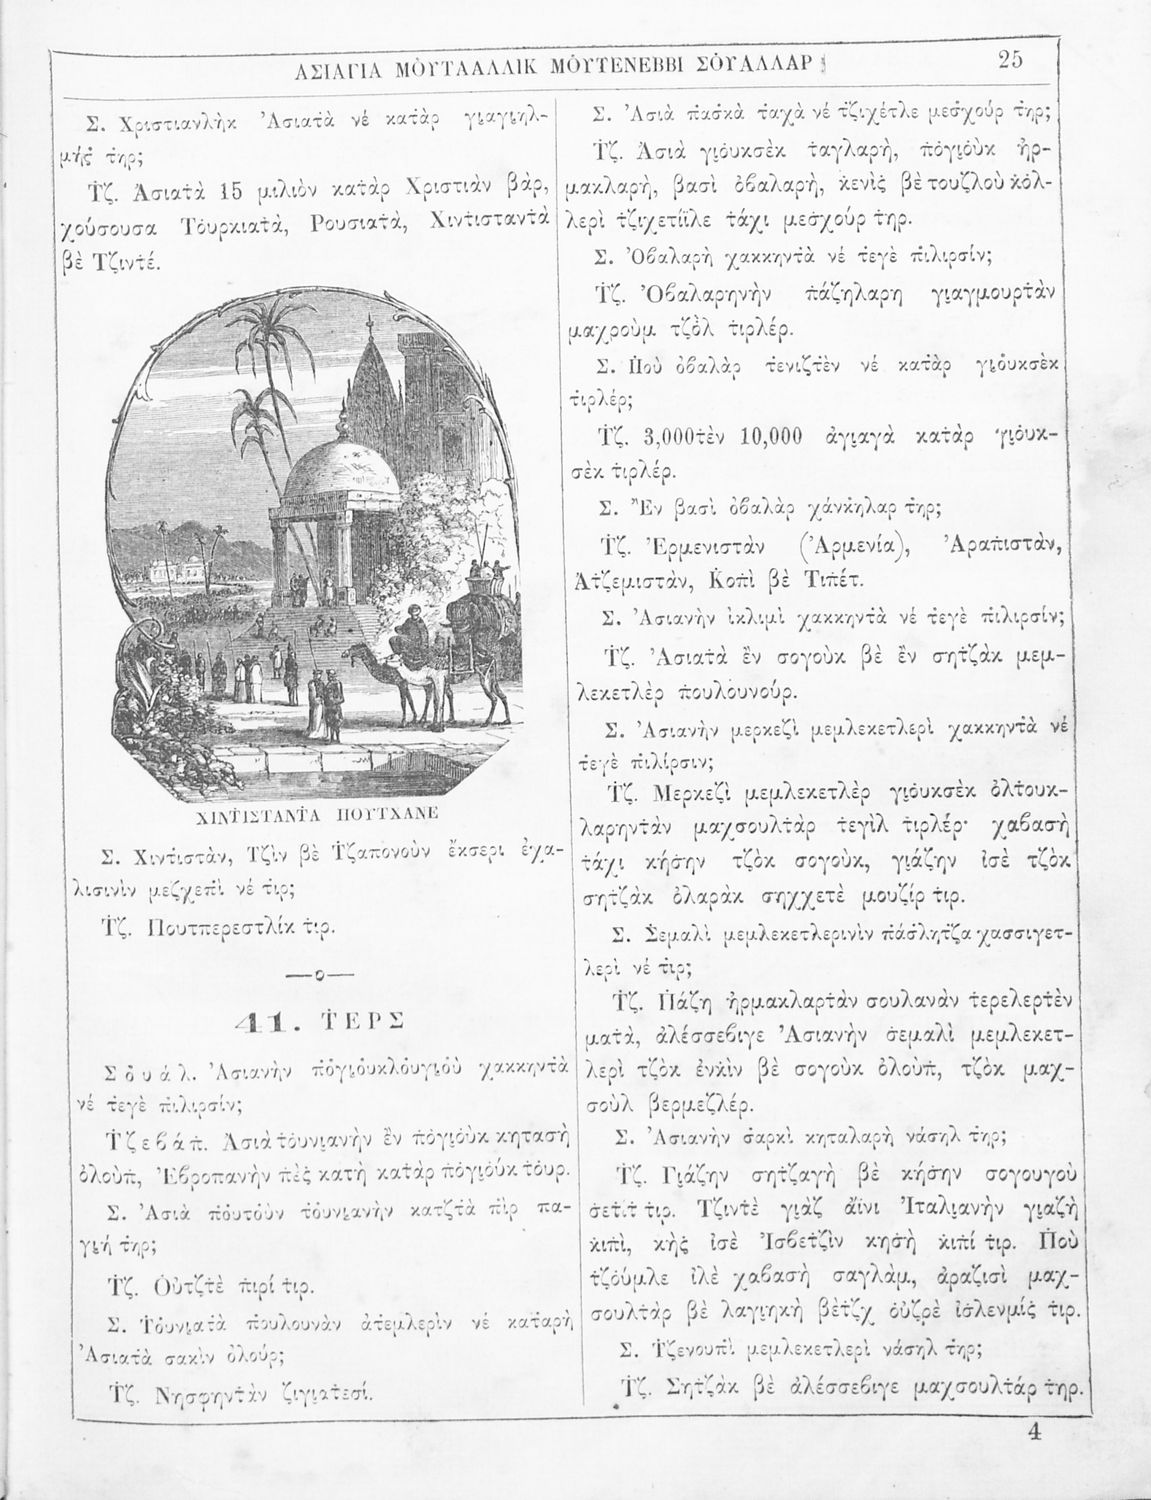 ΑΣΙΑΓΙΑ ΜΟΥΤΑΑΛΛΙΚ ΜΟΥΤΕΝΕΒΒΙ ΣΟΥΑΛΛΑΡ
25
Σ. Χριστιανλὴκ Ἀσιατὰ νέ κατὰρ γιαγιηλ-
μής τηρ;
Τζ. Ἀσιατὰ 15 μιλιὸν κατὰρ Χριστιὰν βὰρ,
χούσουσα Τόυρκιατὰ, Ρουσιατὰ, Χιντισταντὰ
βὲ Τζιντέ.
ΧΙΝΤΙΣΤΑΝΤΑ ΠΟΥΤΧΑΝΕ
Σ. Χιντιστὰν, Τζὶν βὲ Τζαπονοὺν ἔκσερι ἐχα-
λισινὶν μεζχεπὶ νέ τιρ;
Τζ. Πουτπερεστλίκ τιρ.
41. ΤΕΡΣ
Σουάλ. Ἀσιανὴν πὀγιουκλὀυγιοὺ χακκηντὰ
νέ τεγὲ πιλιρσίν;
Τζεβάπ. Ἀσιὰ τὀυνιανὴν ἒν πὀγιοὺκ κητασὴ
ὀλοὺπ, Ἐβροπανὴν πὲς κατὴ κατὰρ πὀγιούκ τὀυρ.
Σ. Ἀσιὰ πὀυτοὺν τὀυνιανὴν κατζτὰ πὶρ πα-
γιή τηρ;
Τζ. Οὐτζτὲ πιρί τιρ.
Σ. Τὀυνιατὰ πουλουνὰν ἀτεμλερὶν νέ καταρὴ
Ἀσιατὰ σακὶν ὀλούρ;
Τζ. Νησφηντὰν ζιγιατεσί.
Σ. Ἀσιὰ πασκὰ ταχὰ νέ τζιχέτλε μεσχούρ τηρ;
Τζ. Ἀσιὰ γιουκσὲκ ταγλαρὴ, πὀγιοὺκ ἠρ-
μακλαρὴ, βασὶ ὀβαλαρὴ, κενὶς βὲ τουζλοὺ κὀλ-
λερὶ τζιχετίϊλε τάχι μεσχούρ τηρ.
Σ. Ὀβαλαρὴ χακκηντὰ νέ τεγὲ πιλιρσίν;
Τζ. Ὀβαλαρηνὴν πάζηλαρη γιαγμουρτὰν
μαχροὺμ τζὸλ τιρλέρ.
Σ. Ποὺ ὀβαλὰρ τενιζτὲν νέ κατὰρ γιουκσὲκ
τιρλέρ;
Τζ. 3,000τὲν 10,000 ἀγιαγὰ κατὰρ γιουκ-
σὲκ τιρλέρ.
Σ. Ἒν βασὶ ὀβαλὰρ χάνκηλαρ τηρ;
Τζ. Ἐρμενιστὰν (Ἀρμενία), Ἀραπιστὰν,
Ἀτζεμιστὰν, Κοπὶ βὲ Τιπέτ.
Σ. Ἀσιανὴν ἰκλιμὶ χακκηντὰ νέ τεγὲ πιλιρσίν;
Τζ. Ἀσιατὰ ἒν σογοὺκ βὲ ἒν σητζὰκ μεμ-
λεκετλὲρ πουλουνούρ.
Σ. Ἀσιανὴν μερκεζὶ μεμλεκετλερὶ χακκηντὰ νέ
τεγὲ πιλίρσιν;
Τζ. Μερκεζὶ μεμλεκετλὲρ γιουκσὲκ ὀλτουκ-
λαρηντὰν μαχσουλτὰρ τεγὶλ τιρλέρ· χαβασὴ
τάχι κήσην τζὸκ σογοὺκ, γιάζην ἰσὲ τζὸκ
σητζὰκ ὀλαρὰκ σηχχετὲ μουζίρ τιρ.
Σ. Σεμαλὶ μεμλεκετλερινὶν πάσλητζα χασσιγετ-
λερὶ νέ τιρ;
Τζ. Πάζη ἠρμακλαρτὰν σουλανὰν τερελερτὲν
ματὰ, ἀλέσσεβιγε Ἀσιανὴν σεμαλὶ μεμλεκετ-
λερὶ τζὸκ ἐνκὶν βὲ σογοὺκ ὀλοὺπ, τζὸκ μαχ-
σοὺλ βερμεζλέρ.
Σ. Ἀσιανὴν σαρκὶ κηταλαρὴ νάσηλ τηρ;
Τζ. Γιάζην σητζαγὴ βὲ κήσην σογουγοὺ
σετίτ τιρ. Τζιντὲ γιὰζ ἄϊνι Ἰταλιανὴν γιαζὴ
κιπὶ, κὴς ἰσὲ Ἰσβετζὶν κησὴ κιπί τιρ. Ποὺ
τζὀυμλε ἰλὲ χαβασὴ σαγλὰμ, ἀραζισὶ μαχ-
σουλτὰρ βὲ λαγιηκὴ βὲτζχ ὀυζρὲ ἰσλενμίς τιρ.
Σ. Τζενουπὶ μεμλεκετλερὶ νάσηλ τηρ;
Τζ. Σητζὰκ βὲ ἀλέσσεβιγε μαχσουλτάρ τηρ.
4